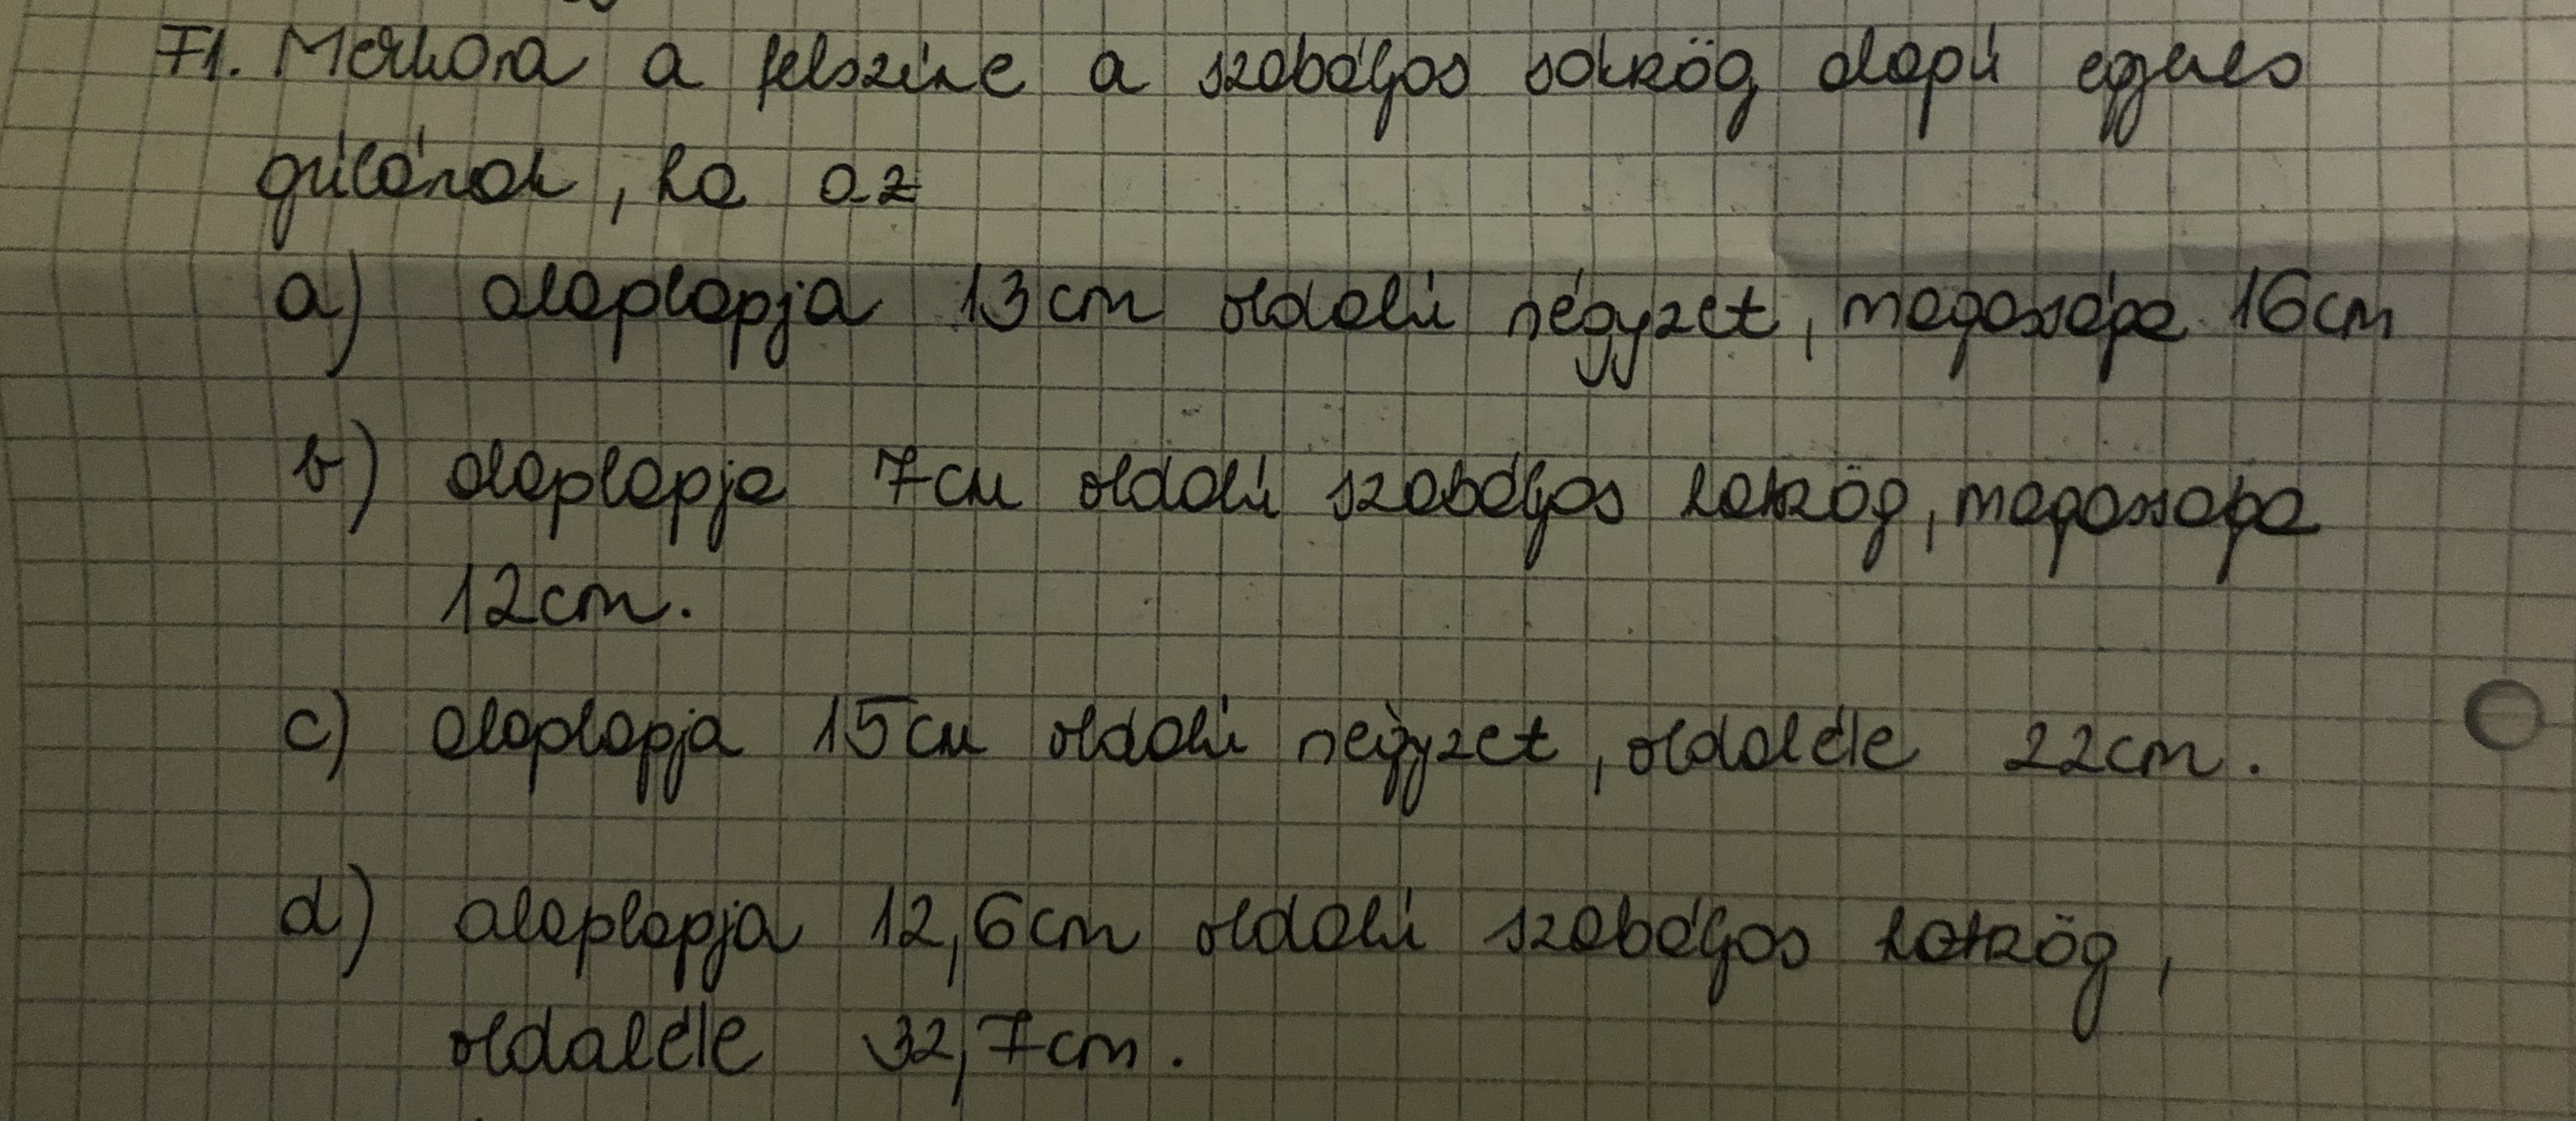 71. Mekkora a felszíne a szabályos sokszög alapú egyenes
gúlának, ha az
a) alaplapja 13 cm oldalú négyzet, magassága 16cm
b) alaplapja 7cm oldalú szabályos hatszög, magassaga
12cm.
c) alaplapja 15cm oldalú négyzet, oldaléle 22cm.
d) alaplapja 12,6cm oldalú szabályos hatszög,
oldaléle 32,7cm.